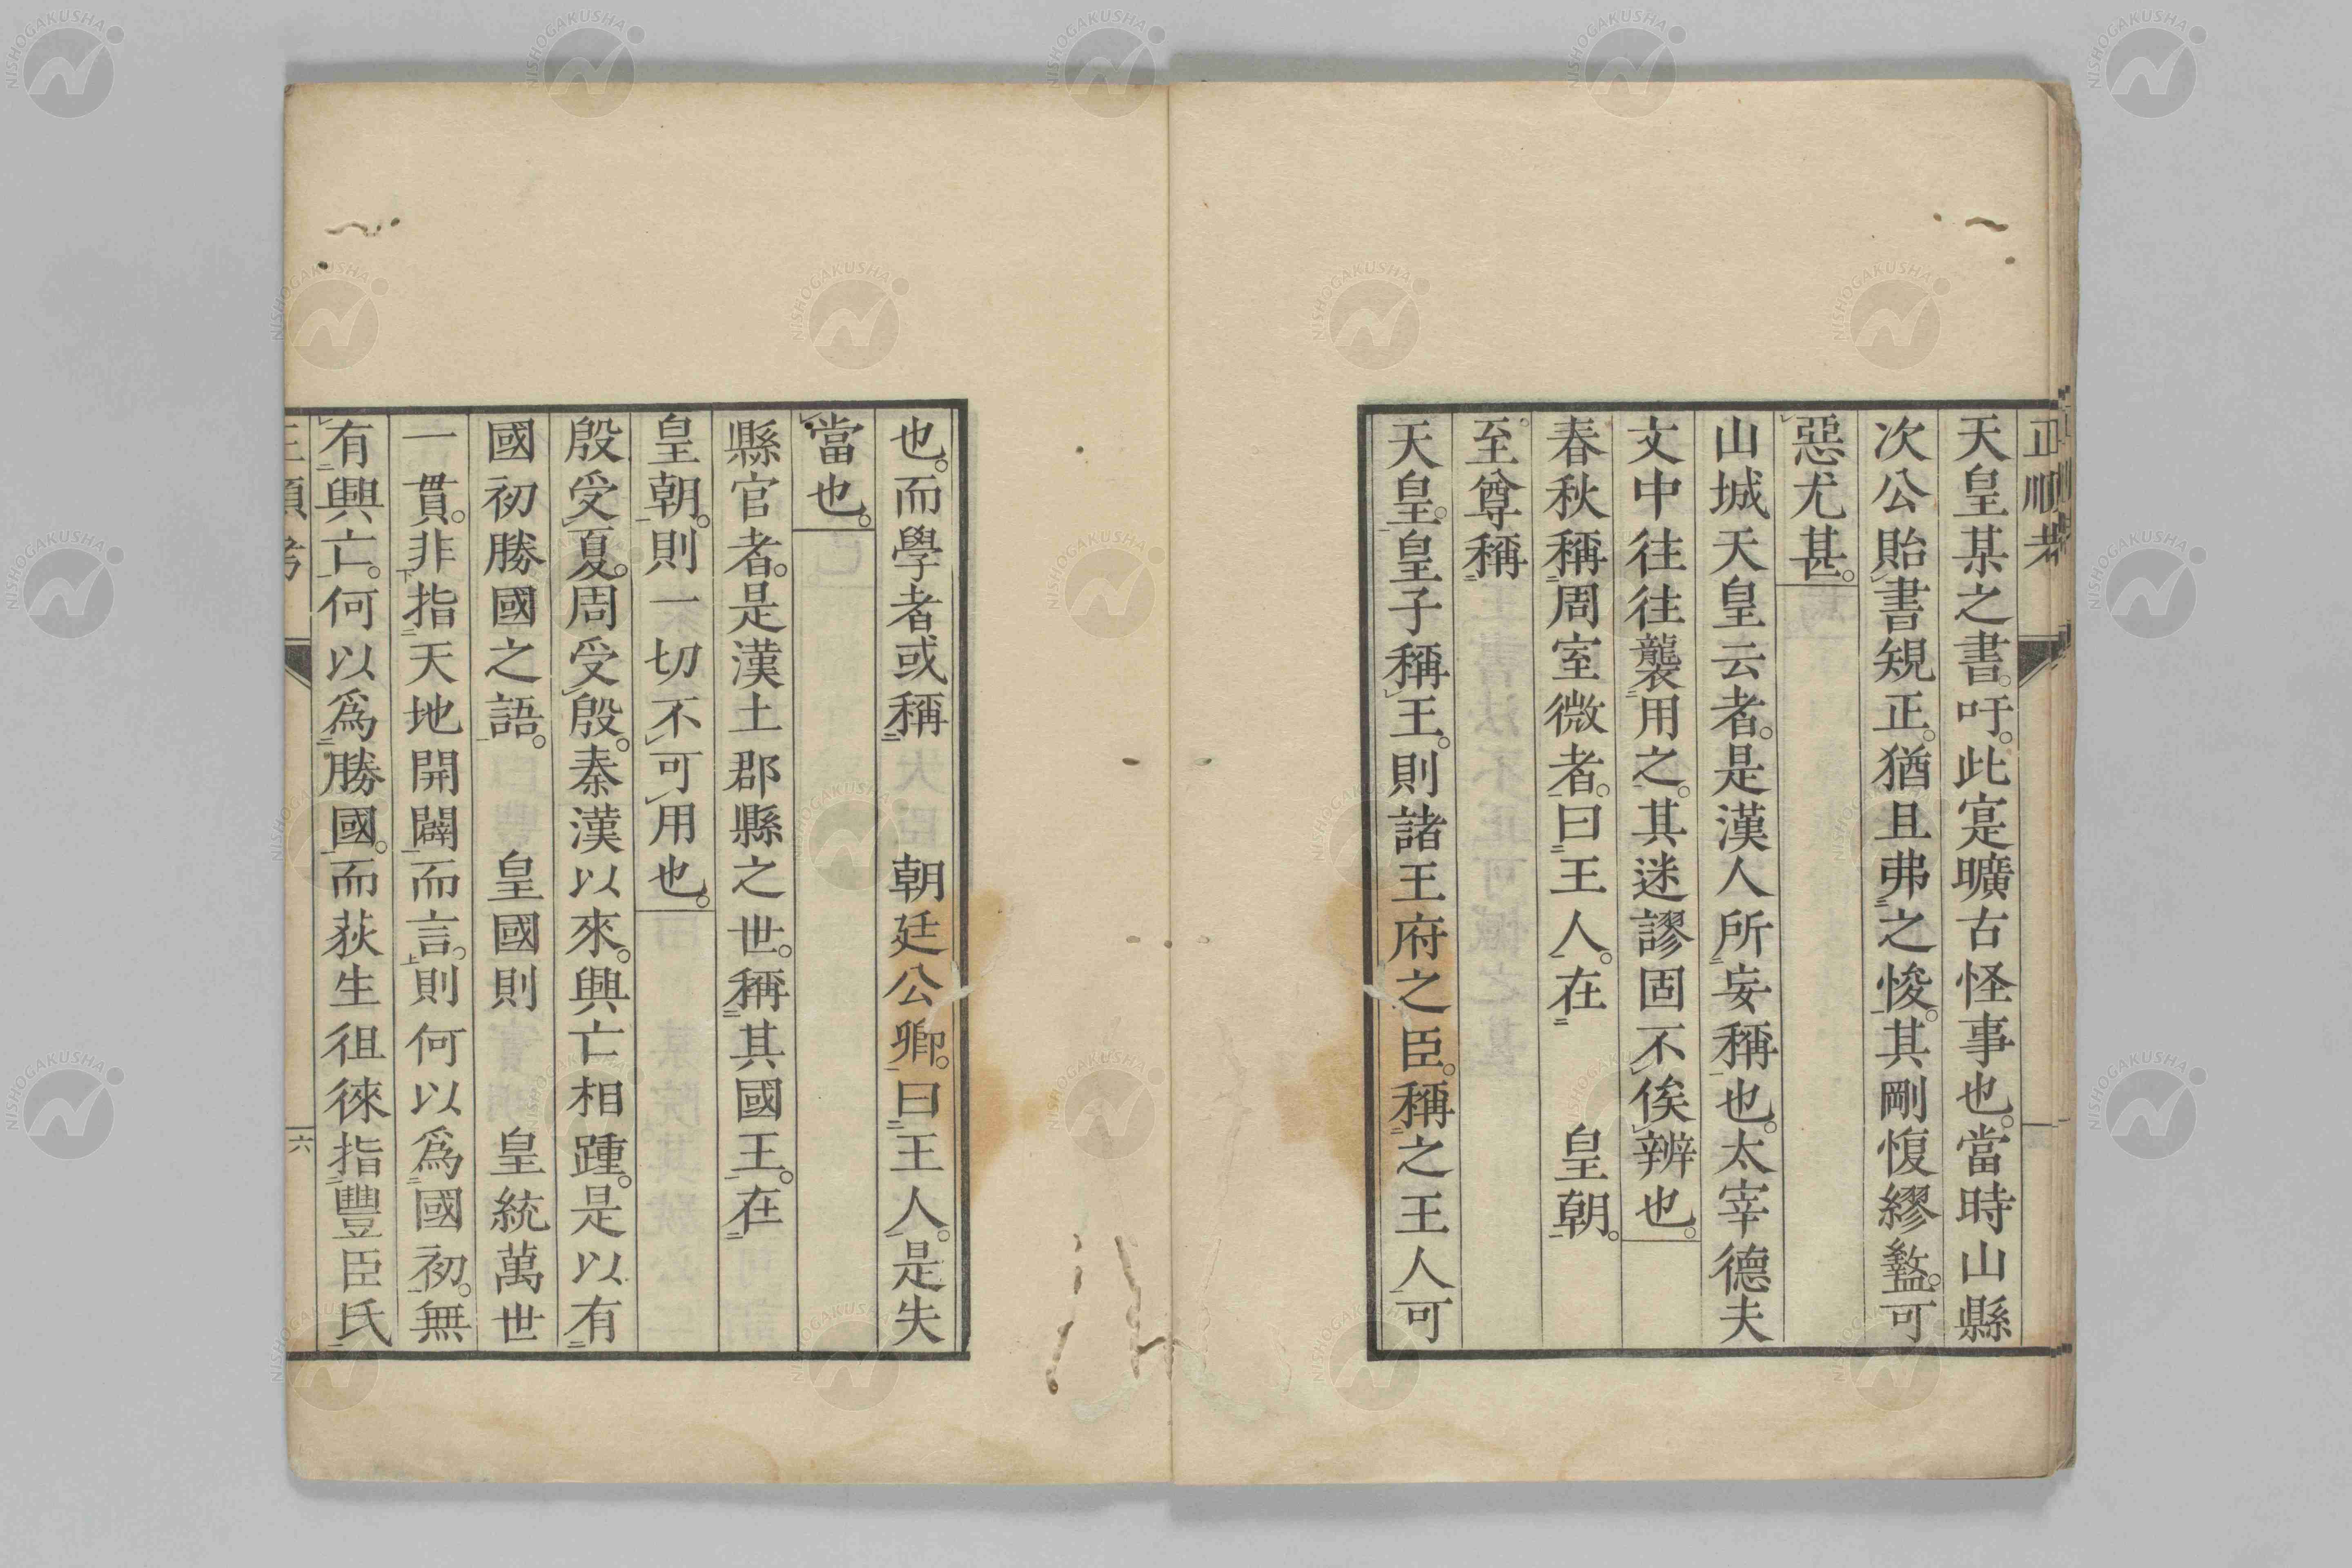 天皇某之書。吁。此寔曠古怪事也。當時山縣
次公貽書規正。猶且弗之悛。其剛愎繆盭。可
惡尤甚。
山城天皇云者。是漢人所妄稱也。太宰德夫
文中往往襲用之。其迷謬固不俟辨也。
春秋稱周室微者。曰王人。在　皇朝。
至尊稱
天皇。皇子稱王。則諸王府之臣。稱之王人可
也。而學者或稱　朝廷公卿。曰王人。是失
當也。
縣官者。是漢土郡縣之世。稱其國王。在
皇朝。則一切不可用也。
殷受夏。周受殷。秦漢以來。興亡相踵。是以有
國初勝國之語。　皇國則　皇統萬世
一貫。非指天地開闢而言。則何以爲國初。無
有興亡。何以爲勝國。而荻生徂徠指豐臣氏
六
NISHOGAKUSHA